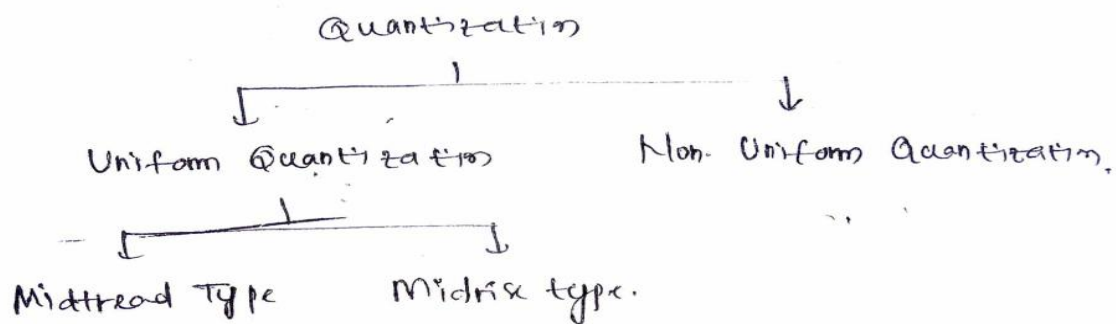 Quantization
Uniform Quantization Non. Uniform Quantization.
Midtread Type Midrise type.